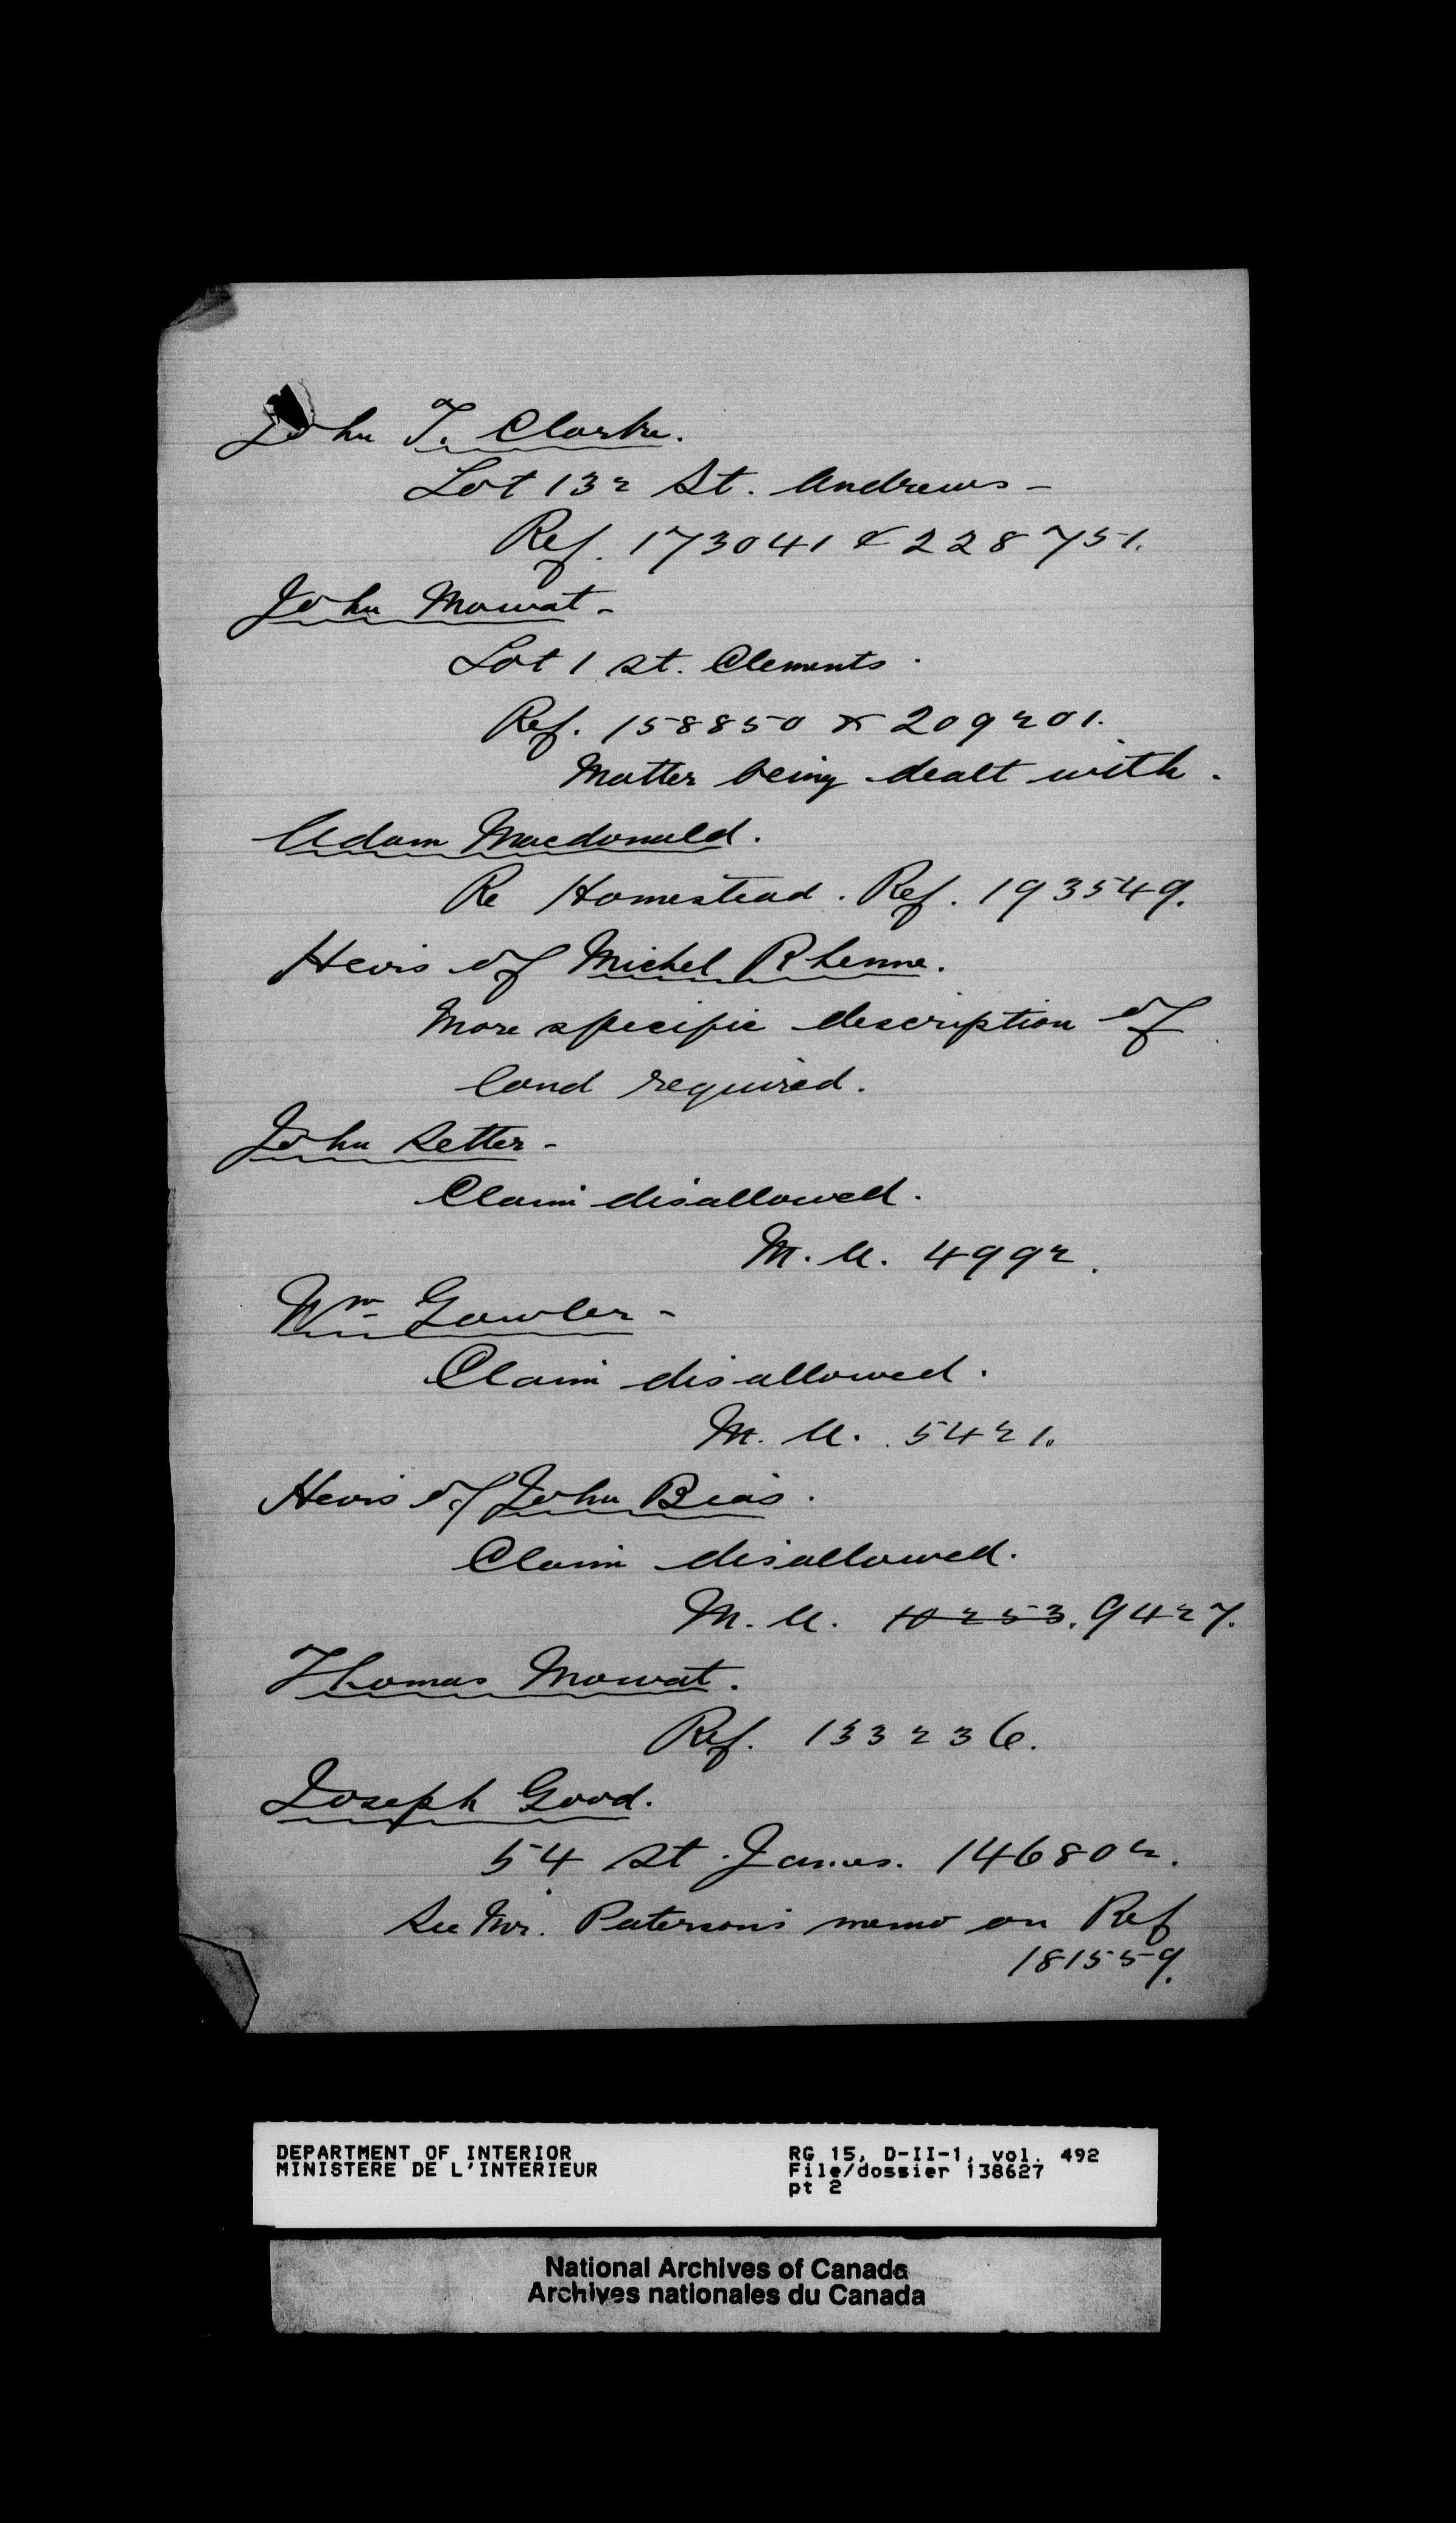 John T. Clarke.
Lot 132 St. Andrews -
Ref. 173041 & 228751.
John Mowat -
Lot 1 St. Clements.
Ref. 158850 & 209201.
Matter being dealt with.
Adam Macdonald.
Re Homestead. Ref. 193549.
Heirs of Michel Rhenne.
More specific description of
land required.
John Setter -
Claim disallowed.
M.A. 4992.
Wm Gowler -
Claim disallowed.
M.A. 5421.
Heirs of John Beas.
Claim disallowed.
M.A. 10253. 9427.
Thomas Mowat.
Ref. 133236.
Joseph Good.
54 St. James. 146802.
See Mr. Paterson's memo on Ref
181559.
DEPARTMENT OF INTERIOR RG 15, D-II-1, vol. 492
MINISTERE DE L'INTERIEUR File/dossier 138627
pt 2
National Archives of Canada
Archives nationales du Canada